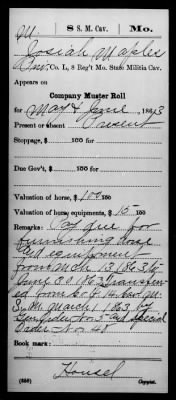 M. 8 S. M. Cav. Mo.
Josiah Maples
Co. L, 8 Reg't Mo. State Militia Cav.
Appears on
Company Muster Roll
for May & June, 1863
Present or absent Present
Stoppage, $ 100 for
Due Gov't, $ 100 for
Valuation of horse, $ 100 100
Valuation of horse equipments, $ 15 100
Remarks: Pay due for
furnishing horse
and equipment
from Mch 13, 1863 to
June 30 1863 Transfer
ed from Co. 14 Cav. M.
S. M. March 1 1863 by
Gen Order No 5 and Special
Order No 48
Book mark:
Housel
(358) Copyist.